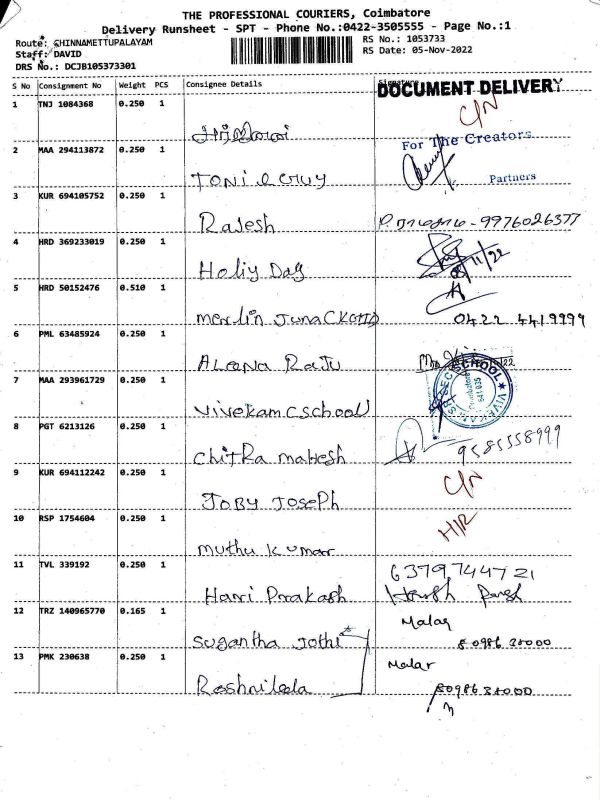 THE PROFESSIONAL COURIERS, Coimbatore
Delivery Runsheet - SPT - Phone No.:0422-3505555 - Page No.:1
Route: CHINNAMETTUPALAYAM
RS No.: 1053733
Staff: DAVID
RS Date: 05-Nov-2022
DRS No.: DCJB105373301
S No Consignment No Weight PCS Consignee Details Signature
DOCUMENT DELIVERY
1 TNJ 1084368 0.250 1
C/N
For The Creators
2 MAA 294113872 0.250 1
Partners
3 KUR 694105752 0.250 1
Rajesh
9976026377
4 HRD 369233019 0.250 1
Holiy Day
/11/22
5 HRD 50152476 0.510 1
Merlin
0422 4419999
6 PML 63485924 0.250 1
ALeena Raju
7 MAA 293961729 0.250 1
Vivekam C School
8 PGT 6213126 0.250 1
9585558999
Chitra mahesh
9 KUR 694112242 0.250 1
C/N
JOBY JOSEPH
10 RSP 1754604 0.250 1
Muthu Kumar
11 TVL 339192 0.250 1
6379744721
Hari Prakash
12 TRZ 140965770 0.165 1
Malar
Sugantha Jothi
13 PMK 230638 0.250 1
Malar
Roshni